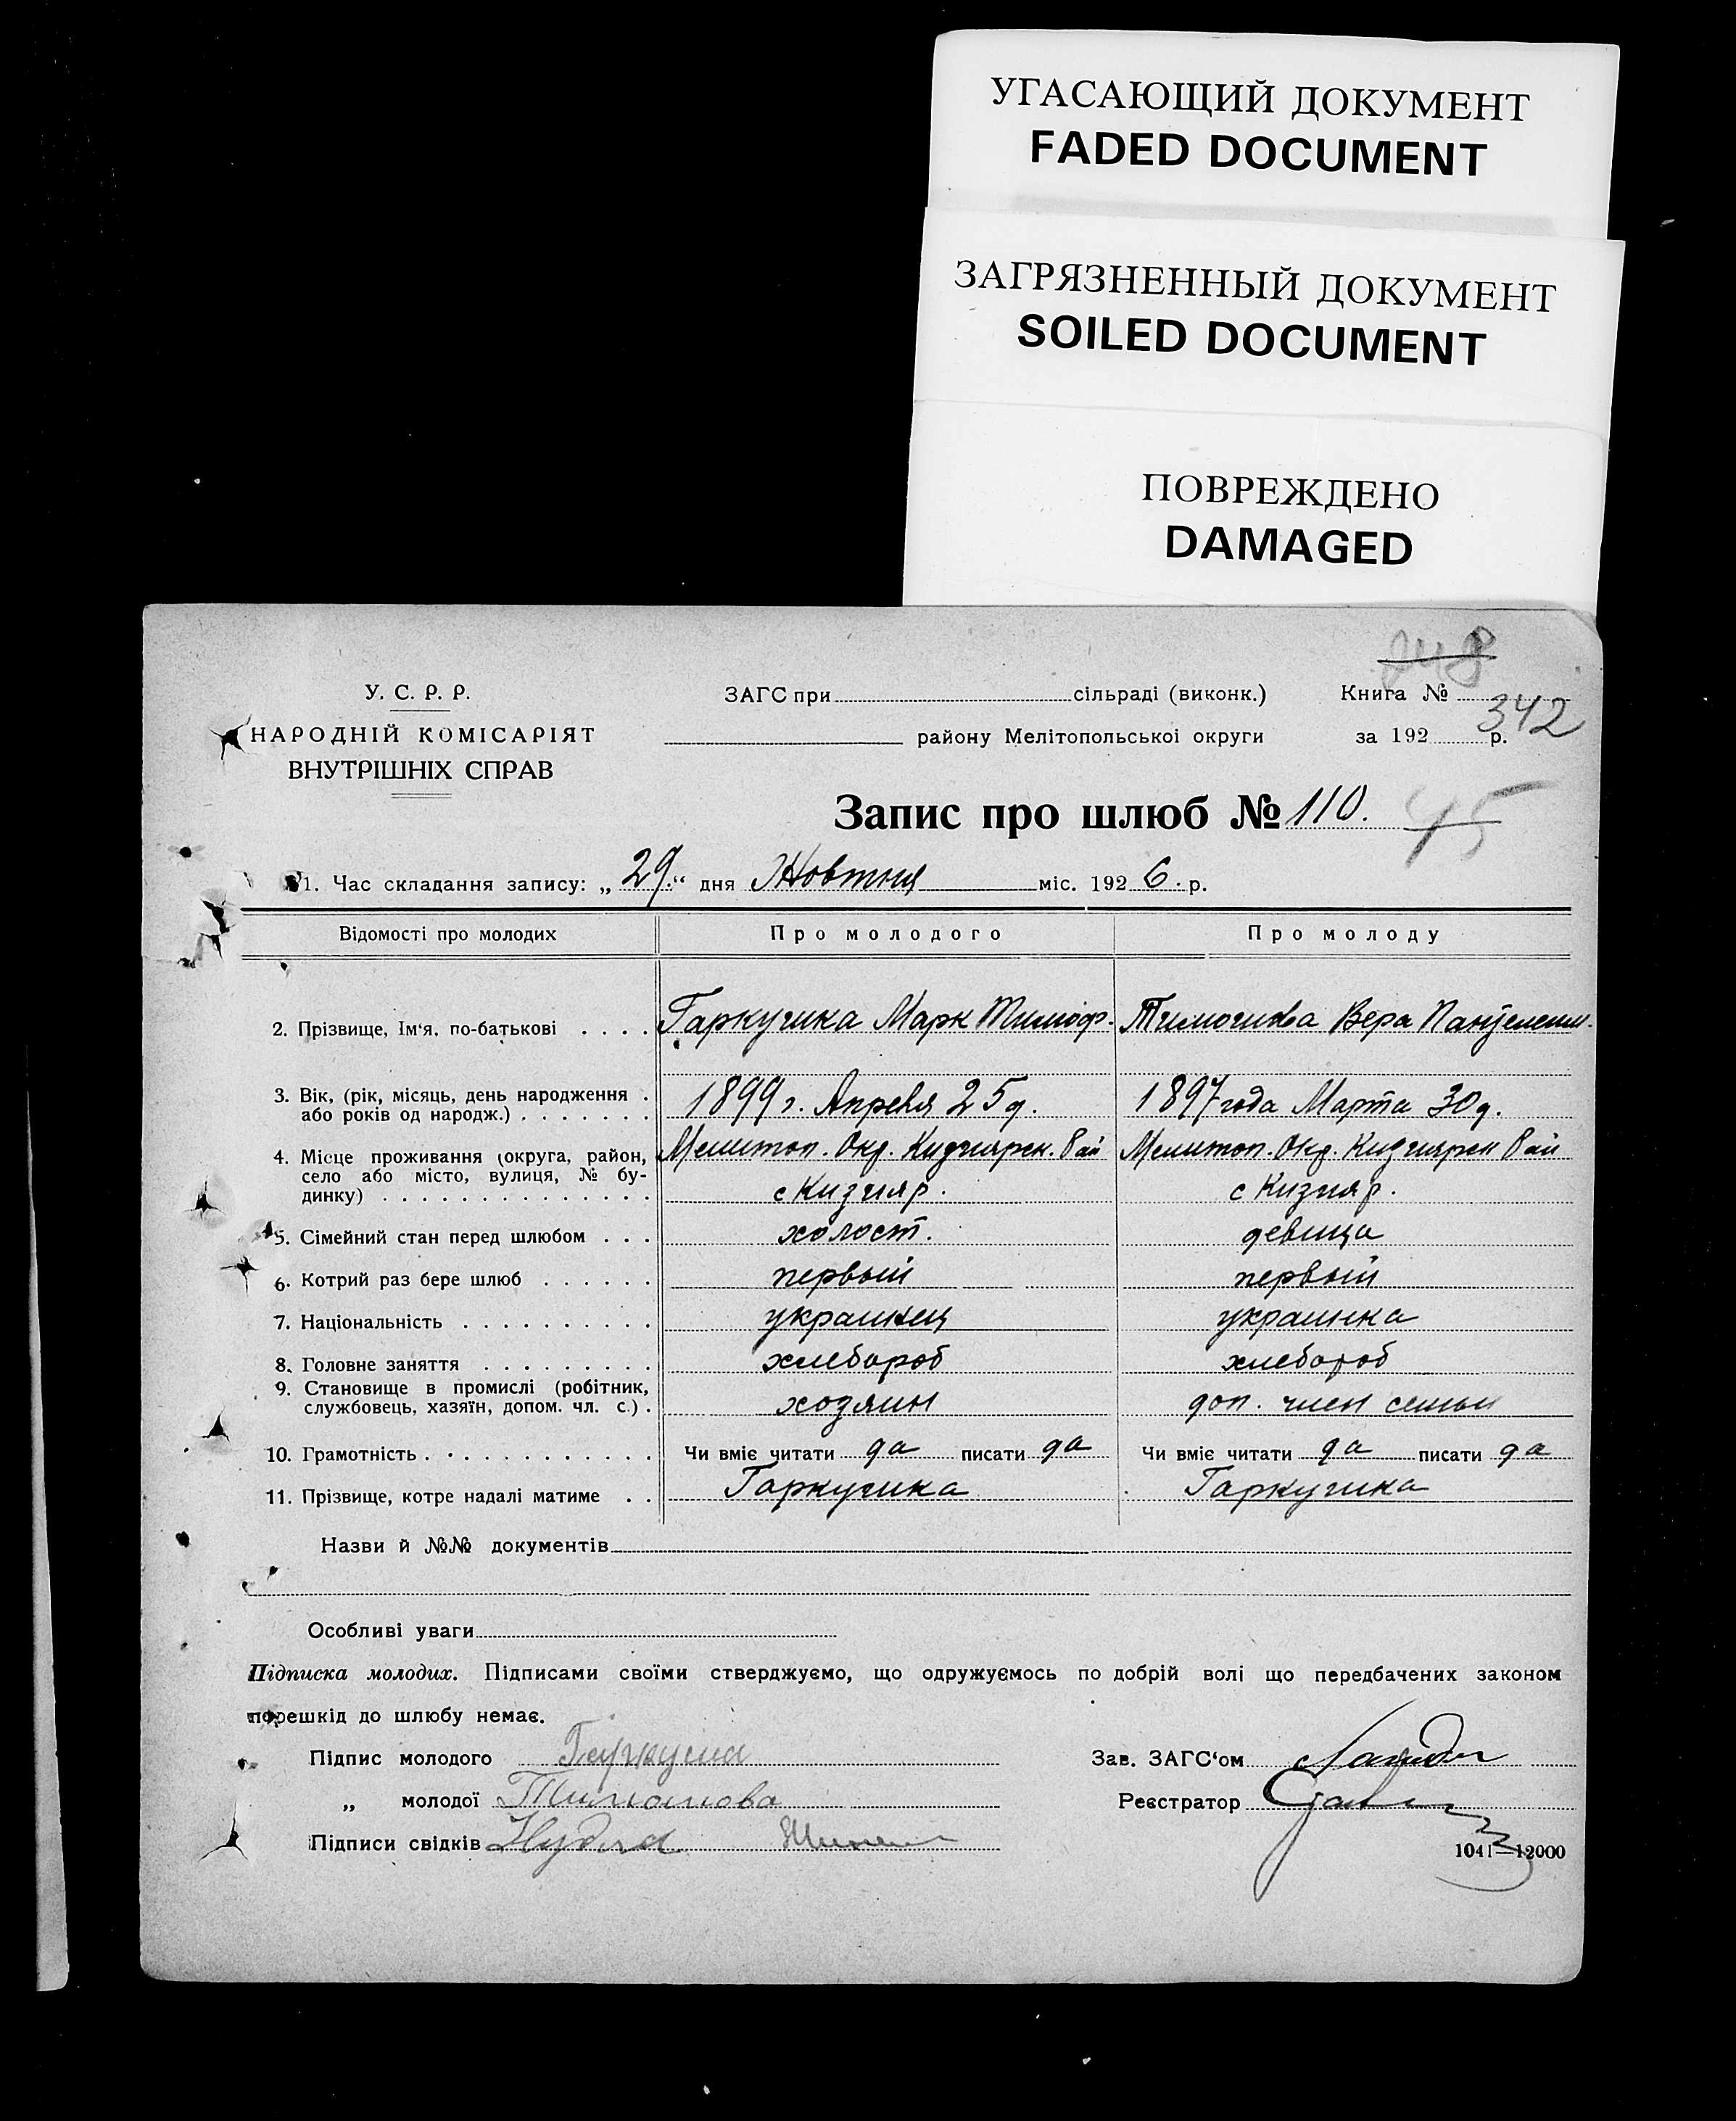 УГАСАЮЩИЙ ДОКУМЕНТ
FADED DOCUMENT
ЗАГРЯЗНЕННЫЙ ДОКУМЕНТ
SOILED DOCUMENT
ПОВРЕЖДЕНО
DAMAGED
У. С. Р. Р.
НАРОДНІЙ КОМІСАРІЯТ
ВНУТРІШНІХ СПРАВ
ЗАГС при сільраді (виконк.)
району Мелітопольської округи
Книга №
342
за 192 р.
Запис про шлюб № 110. 45
1. Час складання запису: „29.“ дня Жовтня міс. 1926. р.
Відомості про молодих Про молодого Про молоду
2. Прізвище, Ім'я, по-батькові . . . . Гаркушка Марк Тимоф. Тимошова Вера Пантелеим.
3. Вік, (рік, місяць, день народження .
або років од народж.) . . . . . . . 1899 г. Апреля 25 д. 1897 года Марта 30 д.
4. Місце проживання (округа, район, Мелитоп. Окр. Кизиярск. Рай Мелитоп. Окр. Кизиярск Рай
село або місто, вулиця, № бу-
динку) . . . . . . . . . . . . . . с Кизияр. с Кизияр.
5. Сімейний стан перед шлюбом . . . холост. девица
6. Котрий раз бере шлюб . . . . . . первый первый
7. Національність . . . . . . . . . . украинец украинка
8. Головне заняття . . . . . . . . . хлебороб хлебороб
9. Становище в промислі (робітник,
службовець, хазяїн, допом. чл. с.) . хозяин доп. член семьи
10. Грамотність . . . . . . . . . . . Чи вміє читати да писати да Чи вміє читати да писати да
11. Прізвище, котре надалі матиме . . Гаркушка Гаркушка
Назви й №№ документів
Особливі уваги
Підписка молодих. Підписами своїми стверджуємо, що одружуємось по добрій волі що передбачених законом
перешкід до шлюбу немає.
Підпис молодого
Зав. ЗАГС'ом
„ молодої Тимошова
Реєстратор
Підписи свідків
1041—12000